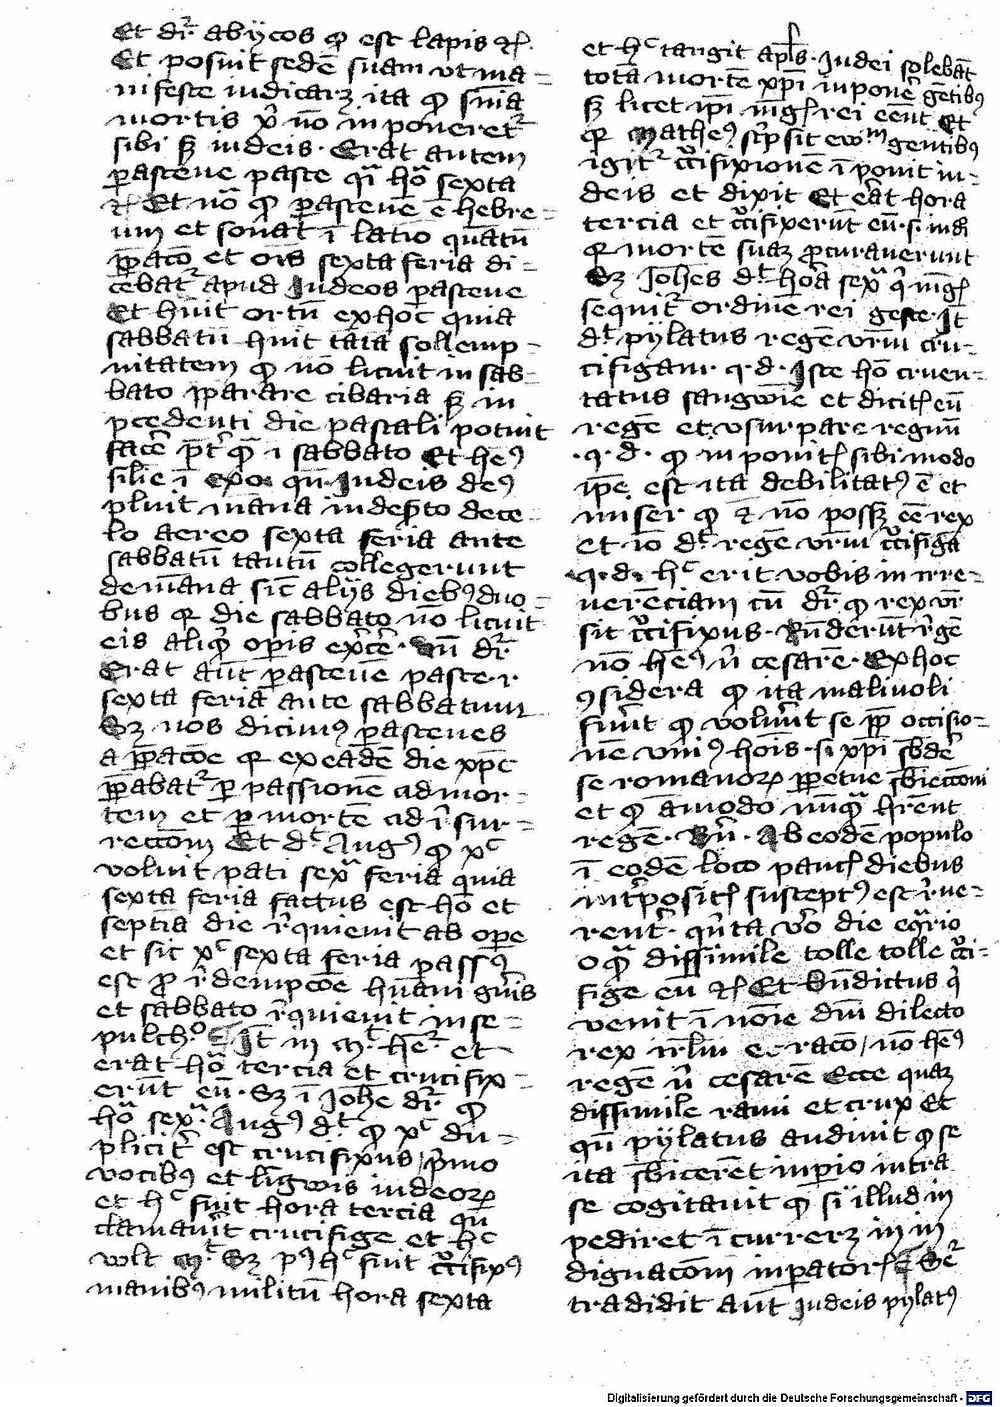 Et dr̄ abycos ꝙ est lapis ⁊c̄.
Et posuit sedē suam vt ma-
nifeste iudicarꝫ ita ꝙ sn̄ia
mortis xp̄i nō in poneret᷑
sibi sꝫ iudeis. Erat autem
pasceue pasce q̄i ho̅ sexta
⁊c̄ Et nō ꝙ pasceue ē hebre-
um et sonat ī latīo quātū
p̄paco̅ et ois sexta feria di-
cebat᷑ apud Judeos pasceue
Et huit ortū ex hoc quia
sabbatū huit tātā sollemp-
nitatem ꝙ nō licuit in sab-
bato p̄parare cibaria sꝫ in
p̄cedenti die pascali potuit
facē p̄t q̄ ī sabbato Et heꝰ
sile ī exo. qn̄ Judeis deꝰ
pluit māna in desto de ce-
lo aereo sexta feria ante
sabbatū tantū collegerunt
de māna sic̄ alijs diebꝰ duo-
bus qꝛ die sabbato nō licuit
eis aliqͥ opis exc̄e. Vn̄ dr̄
Erat aūt pasceue pasce. ⁊
sexta feria ante sabbatum
Sꝫ nos dicimꝰ pasceues
a p̄pacoe qꝛ ex eadē die xp̄c
p̄pabat᷑ ꝑ passionē ad mor-
tem et ꝑ mortē ad r̄sur-
rectōm Et dͭ Augꝰ ꝙ xᷓc
voluit pati sexᵃ feria quia
sexta feria factus est hō et
septīa die r̄quieuit ab ope
et sic xᷓc sexta feria passꝰ
est ꝓ r̄dempcōe huani gn̄is
et sabbato r̄quieuit in se-
pulchͦ. Jt̄ in mͬ heͬ et
erat ho̅ tercia et crucifix-
erūt eū. Sꝫ ī Johe dr̄ ꝙ
ho̅ sexᵃ. Augꝰ dͭ ꝙ xᷓc du-
plicit̄ est crucifixus, pͥmo
vocibꝰ et ligwis iudeoꝝ
et hͨ fuit hora tercia qn̄
clamauer̄t crucifige et hͨ
vlt mͬ Sꝫ pꝰ hͨ fuit cͥcifixꝰ
manibꝰ militū hora sexta
et hͨ tangit apl̄s. Judei solebāt
totā mortē xp̄i in ponē gētibꝰ
sꝫ licet ipi mͣg rei eēnt Et
qꝛ Matheꝰ scͥpsit ewᵐ gentibꝰ
igit᷑ cͥcifixionē ī ponit iu-
deis et dixit Et eāt hora
tercia et cͥcifixerūt eū. s. iudi
qꝛ mortē suaꝫ ꝓcurauerunt
Sꝫ Johes dͭ hoā sexᵃ qͥ mͣg
sequit᷑ ordinē rei geste. Jt̄
dͭ pylatus regē vrm̄ cru-
cifigam. q.d. Jste hō cruen-
tatus sangwīe et dicit eū
regē et vsurpare regnū
.q.d. ꝙ in ponit sibi modo
ip̄e est ita debilitatꝰ ē et
miser ꝙ nō possꝫ eē rex
et iō dͭ regē vrm̄ cͥcifigā
.q.d. hͨ erit vobis in irre-
uerēciam cū dr̄ ꝙ rex vr̄
sit cͥcifixus. Rn̄derūt r̄gē
nō heꝰ n̄ cesarē. Ex hoc
ꝯsidera ꝙ ita maliuoli
fuer̄t ꝙ volūt se ꝓp occisio-
nē vniꝰ hois. s. xp̄i sb̄dē
se romanoꝝ ꝓpetue sb̄iectōni
et ꝙ āmodo nūqᷓ hr̄ent
regē. Bn̄. Ab eodē populo
ī eodē loco pauc̄ diebus
int̄posit̄ susceptꝰ est r̄ue-
rent᷑. qn̄ta v̄o die eqͣrio
o qᷓ dissimile tolle tolle cͥci-
fige eū ⁊c̄ Et bn̄dictus qͥ
venit ī noīe dnī dilecto
rex isrlm̄ raco, nō heꝰ
regē n̄ cesarē Ecce quaꝫ
dissimile rami et crux Et
qn̄ pylatus audiuit ꝙ se
ita sb̄icerēt inꝑio intra
se cogitauit ꝙ si illud in
pediret ī currerꝫ in in
dignacōm inꝑator̄ Seͬ
tradidit aūt Judeis pylatꝰ
Digitalisierung gefördert durch die Deutsche Forschungsgemeinschaft - DFG